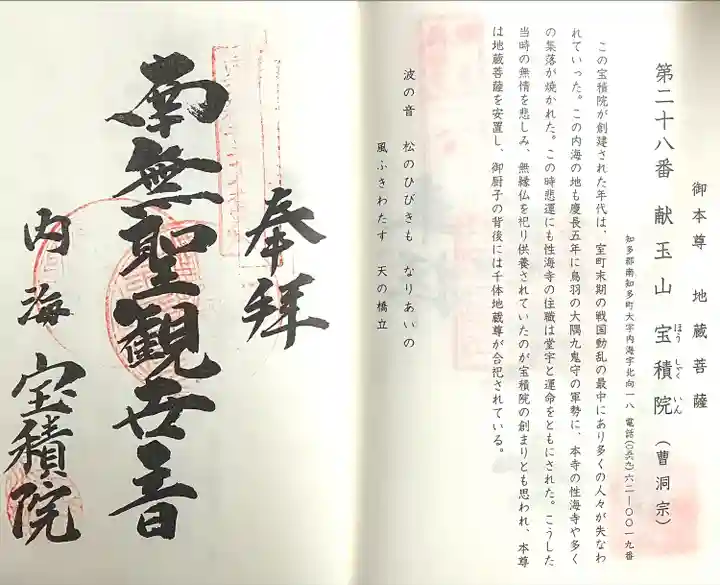 御本尊　地蔵菩薩
第二十八番　献玉山　宝積院（曹洞宗）
ほう　しゃく　いん
知多郡南知多町大字内海字北向一八　電話（〇五六九）六二―〇〇一九番
この宝積院が創建された年代は、室町末期の戦国動乱の最中にあり多くの人々が失なわ
れていった。この内海の地も慶長五年に鳥羽の大隅九鬼守の軍勢に、本寺の性海寺や多く
の集落が焼かれた。この時悲運にも性海寺の住職は堂宇と運命をともにされた。こうした
当時の無情を悲しみ、無縁仏を祀り供養されていたのが宝積院の創まりとも思われ、本尊
は地蔵菩薩を安置し、御厨子の背後には千体地蔵尊が合祀されている。
波の音　松のひびきも　なりあいの
風ふきわたす　天の橋立
奉拝
南無聖観世音
内海　宝積院